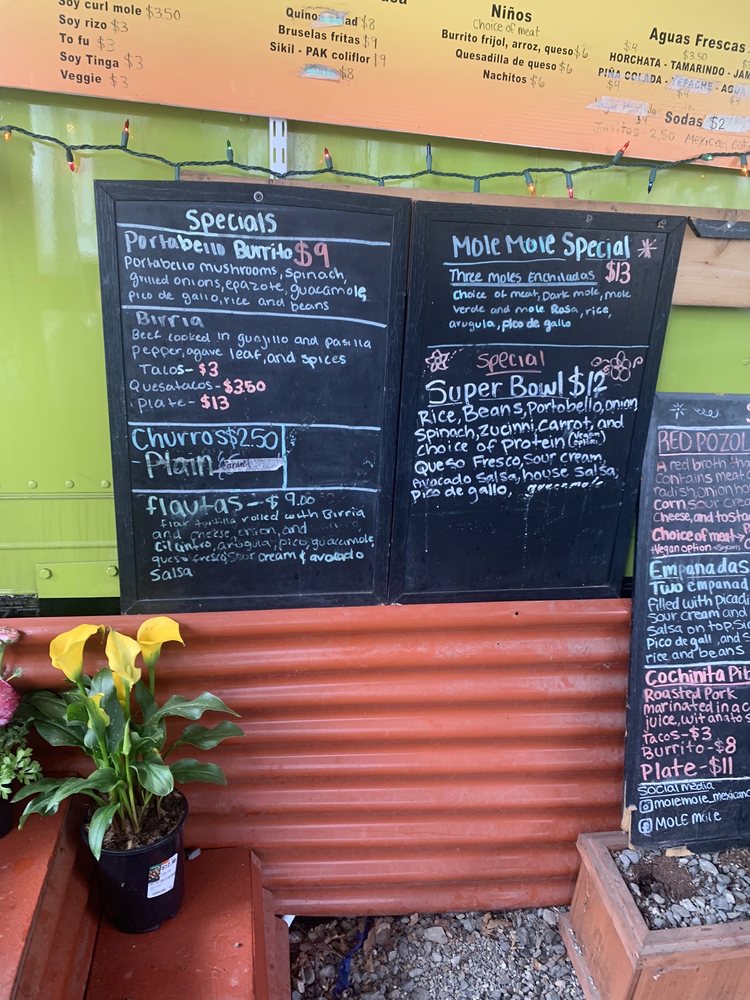 Soy curl mole $3.50
Soy rizo $3
To fu $3
Soy Tinga $3
Veggie $3
$8
Bruselas fritas $9
Sikil - PAK coliflor $9
$8
Niños
Choice of meat
Burrito frijol, arroz, queso $6
Quesadilla de queso $6
Nachitos $6
Aguas Frescas
$4 $3.50
HORCHATA - TAMARINDO - JAM
PIÑA COLADA - TEPACHE - AGU
$4 $4 $4
Sodas $2
Jarritos - 2.50 Mexican co
Specials
Portabello Burrito $9
Portabello mushrooms, spinach,
grilled onions, epazote, guacamole,
pico de gallo, rice and beans
Birria
Beef cooked in guajillo and pasilla
pepper, agave leaf, and spices
Tacos - $3
Quesatacos - $3.50
Plate - $13
Churros $2.50
- Plain
flautas - $9.00
flour tortilla rolled with Birria
and cheese, onion, and
cilantro, arugula, pico, guacamole,
queso fresco, sour cream & avocado
Salsa
Mole Mole Special
Three moles Enchiladas $13
choice of meat, Dark mole, mole
verde and mole Rosa, rice,
arugula, pico de gallo
Special
Super Bowl $12
Rice, Beans, Portobello, onion,
Spinach, zucinni, carrot, and
choice of Protein (vegan option)
Queso Fresco, sour cream,
Avocado salsa, house salsa,
Pico de gallo,
RED POZOL
A red broth th
contains meat
radish, onion, ho
corn, sour cre
cheese, and tosta
Choice of meat
*Vegan option
Empanadas
Two empanad
filled with Picadi
sour cream and
Salsa on top, sid
Pico de gall, and s
rice and beans
Cochinita Pib
Roasted Pork
marinated in a c
juice, wit anato s
Tacos - $3
Burrito - $8
Plate - $11
Social media
molemole_mexican
MOLE Mole